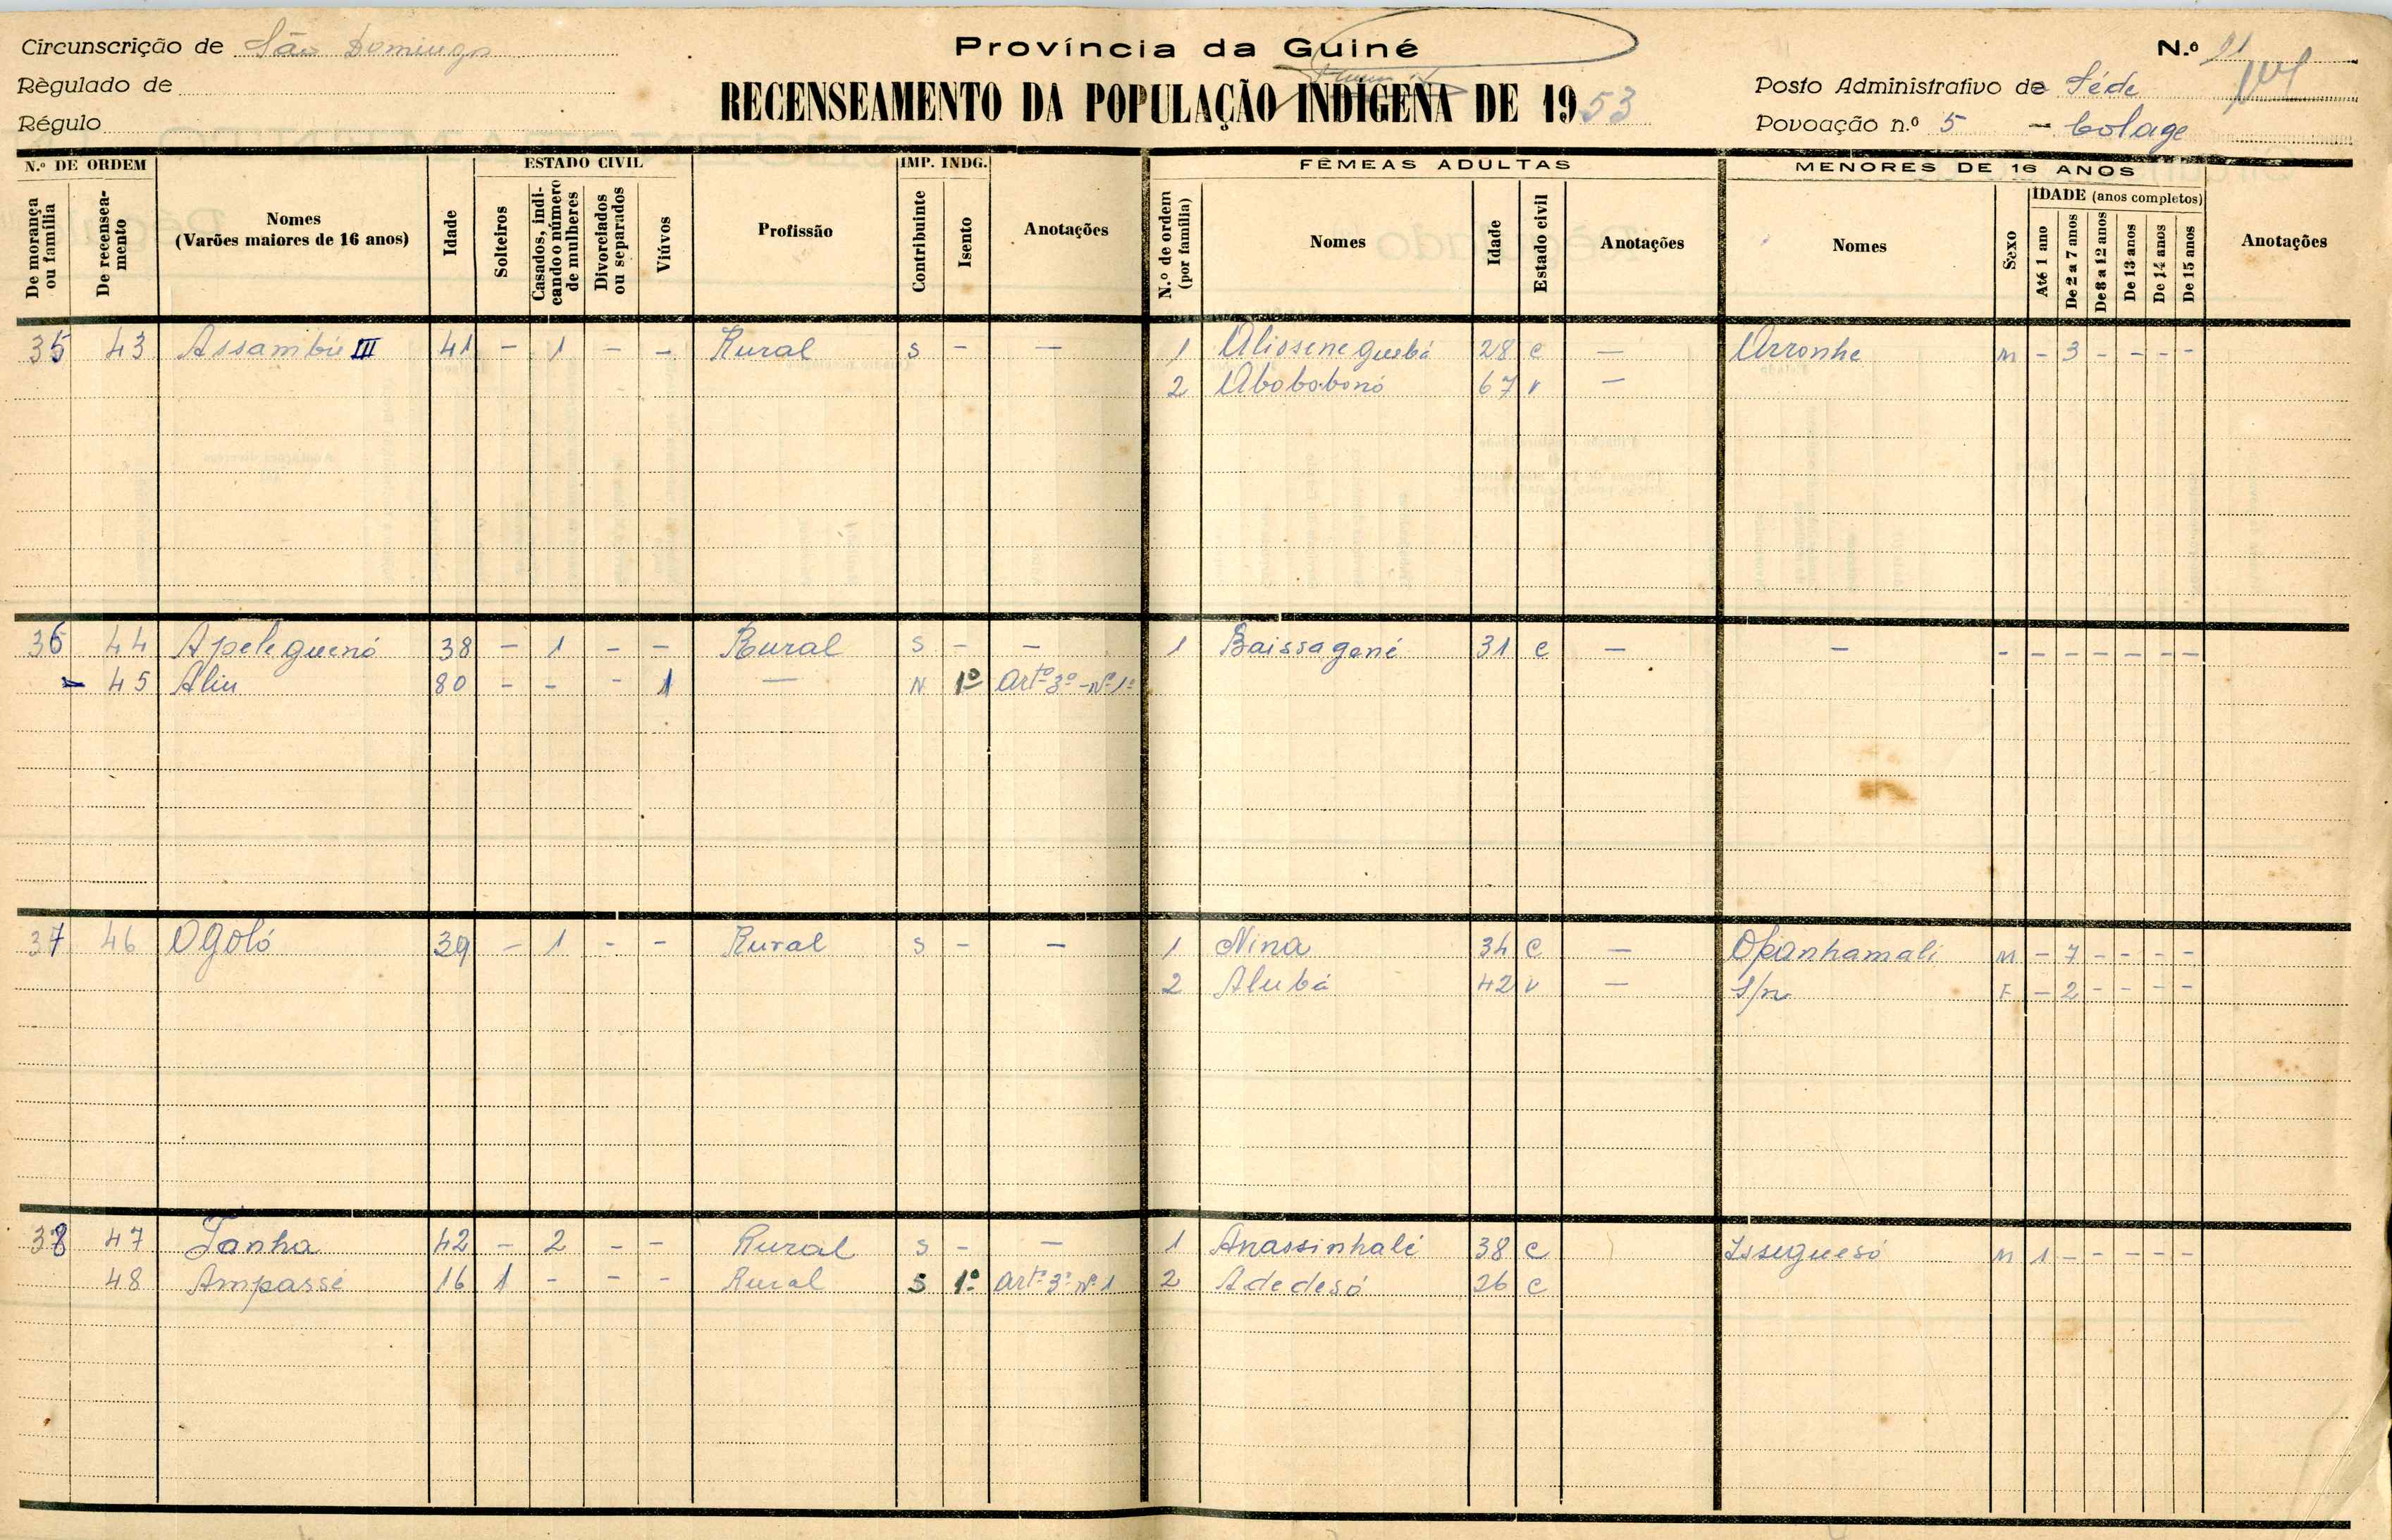 Província da Guiné
Circunscrição de São Domingos
N.º 21
Règulado de
RECENSEAMENTO DA POPULAÇÃO INDÍGENA DE 1953
Posto Administrativo de Séde
Régulo
Povoação n.º 5 - bolage
N.º DE ORDEM ESTADO CIVIL IMP. INDG. FÊMEAS ADULTAS MENORES DE 16 ANOS
De morança ou família De recenseamento Nomes (Varões maiores de 16 anos) Idade Solteiros Casados, indicando o número de mulheres Divorciados ou separados Viúvos Profissão Contribuinte Isento Anotações N.º de ordem (por família) Nomes Idade Estado civil Anotações Nomes Sexo IDADE (anos completos) Até 1 ano De 2 a 7 anos De 8 a 12 anos De 13 anos De 14 anos De 15 anos Anotações
35 43 Assambú III 41 - 1 - - Rural S - - 1 Aliosene guebá 28 C - Arronhe M - 3 - - - -
2 Abobobonó 67 V -
36 44 Apeleguenó 38 - 1 - - Rural S - - 1 Baissagené 31 C - - - - - - - - -
- 45 Aliu 80 - - - 1 - N 1º Artº 3º - Nº 1º
37 46 Ogoló 39 - 1 - - Rural S - - 1 Nina 34 C - Opanhamali M - 7 - - - -
2 Alubá 42 V - S/n F - 2 - - - -
38 47 Tanha 42 - 2 - - Rural S - - 1 Anassinhalé 38 C Issuguesó M 1 - - - - -
48 Ampassé 16 1 - - - Rural S 1º Artº 3º Nº 1 2 Adedesó 26 C